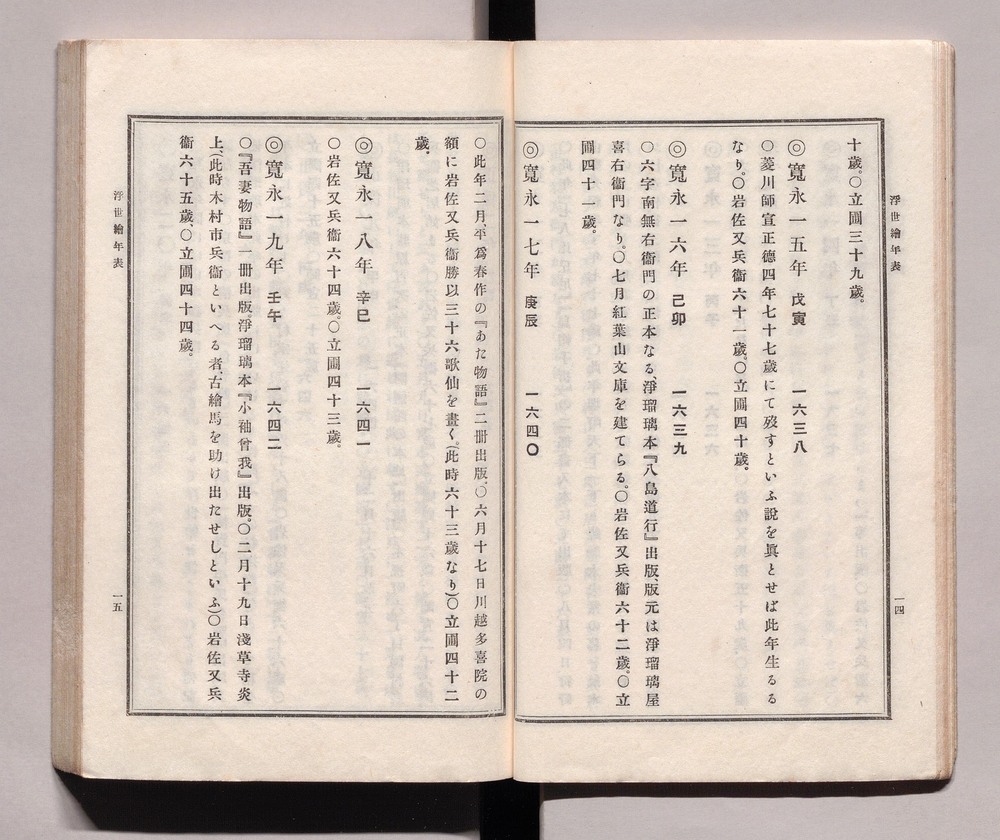 浮世繪年表
一四
十歲。〇立圃三十九歲。
◎寬永一五年 戊寅 一六三八
〇菱川師宣正德四年七十七歲にて歿すといふ說を眞とせば此年生るる
なり。〇岩佐又兵衞六十一歲。〇立圃四十歲。
◎寬永一六年 己卯 一六三九
〇六字南無右衞門の正本なる、淨瑠璃本『八島道行』出版、版元は淨瑠璃屋
喜右衞門なり。〇七月紅葉山文庫を建てらる。〇岩佐又兵衞六十二歲。〇立
圃四十一歲。
◎寬永一七年 庚辰 一六四〇
〇此年二月、平爲春作の『あた物語』二册出版。〇六月十七日川越多喜院の
額に岩佐又兵衞勝以三十六歌仙を畫く。(此時六十三歲なり)〇立圃四十二
歲。
◎寬永一八年 辛巳 一六四一
〇岩佐又兵衞六十四歲。〇立圃四十三歲。
◎寬永一九年 壬午 一六四二
〇『吾妻物語』一册出版。淨瑠璃本『小袖曾我』出版。〇二月十九日淺草寺炎
上、(此時木村市兵衞といへる者、古繪馬を助け出たせしといふ)〇岩佐又兵
衞六十五歲、〇立圃四十四歲。
浮世繪年表
一五